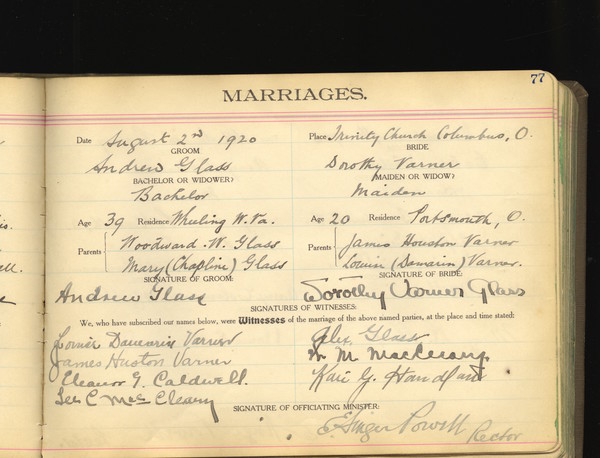 77
MARRIAGES.
Date August 2nd 1920 Place Trinity Church Columbus, O.
GROOM BRIDE
Andrew Glass Dorothy Varner
(BACHELOR OR WIDOWER) (MAIDEN OR WIDOW)
Bachelor Maiden
Age 39 Residence Wheeling W. Va. Age 20 Residence Portsmouth, O.
Parents Woodward W. Glass Parents James Houston Varner
Mary (Chapline) Glass Louise (Damarin) Varner.
SIGNATURE OF GROOM: SIGNATURE OF BRIDE:
Andrew Glass Dorothy Varner Glass
SIGNATURES OF WITNESSES:
We, who have subscribed our names below, were Witnesses of the marriage of the above named parties, at the place and time stated:
Damarin Varner Alex. Glass
James Huston Varner M.
Eleanor G. Caldwell. G.
Lee C Mac Cleary
SIGNATURE OF OFFICIATING MINISTER:
Powell Rector